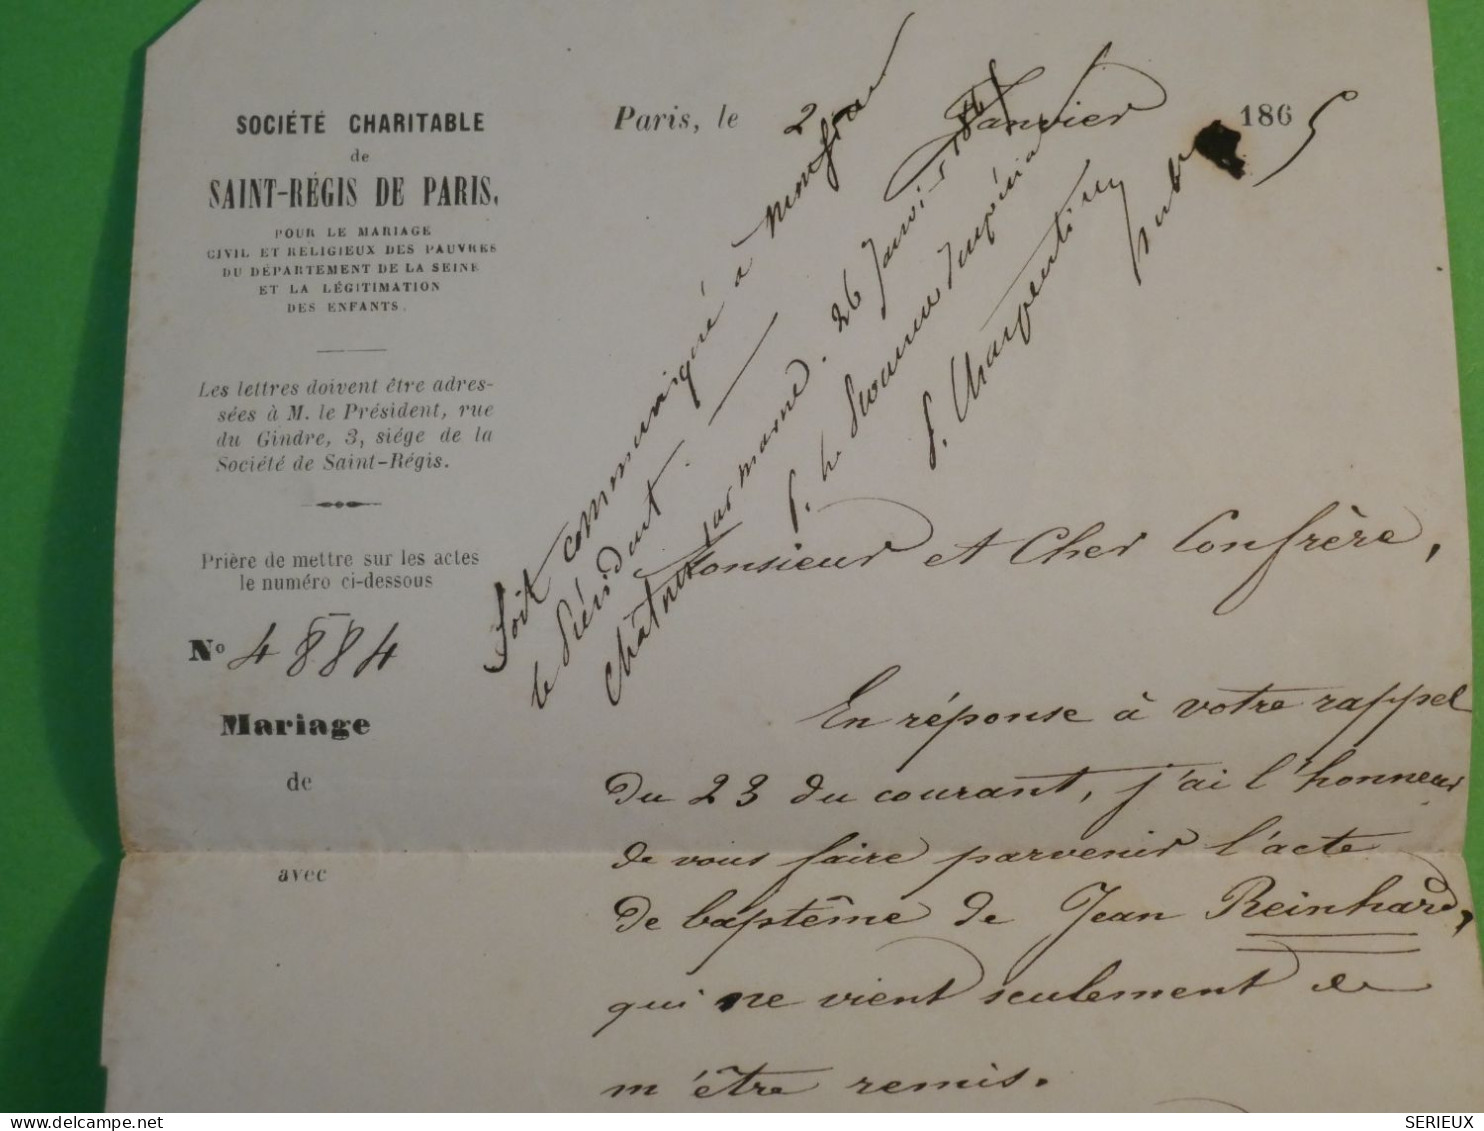 SOCIÉTÉ CHARITABLE
de
SAINT-RÉGIS DE PARIS,
POUR LE MARIAGE
CIVIL ET RELIGIEUX DES PAUVRES
DU DÉPARTEMENT DE LA SEINE
ET LA LÉGITIMATION
DES ENFANTS.
Les lettres doivent être adres-
sées à M. le Président, rue
du Gindre, 3, siége de la
Société de Saint-Régis.
Prière de mettre sur les actes
le numéro ci-dessous
N° 4884
Mariage
de
avec
Paris, le 2 Janvier 1865
Soit communiqué à
le Président
Châtres sur marne. 26 Janvier
P. le Procureur Impérial
S. Charpentier
Monsieur et Cher Confrère,
En réponse à votre rappel
du 23 du courant, j'ai l'honneur
de vous faire parvenir l'acte
de baptême de Jean Reinhard,
qui ne vient seulement de
m'être remis.
SERIEUX